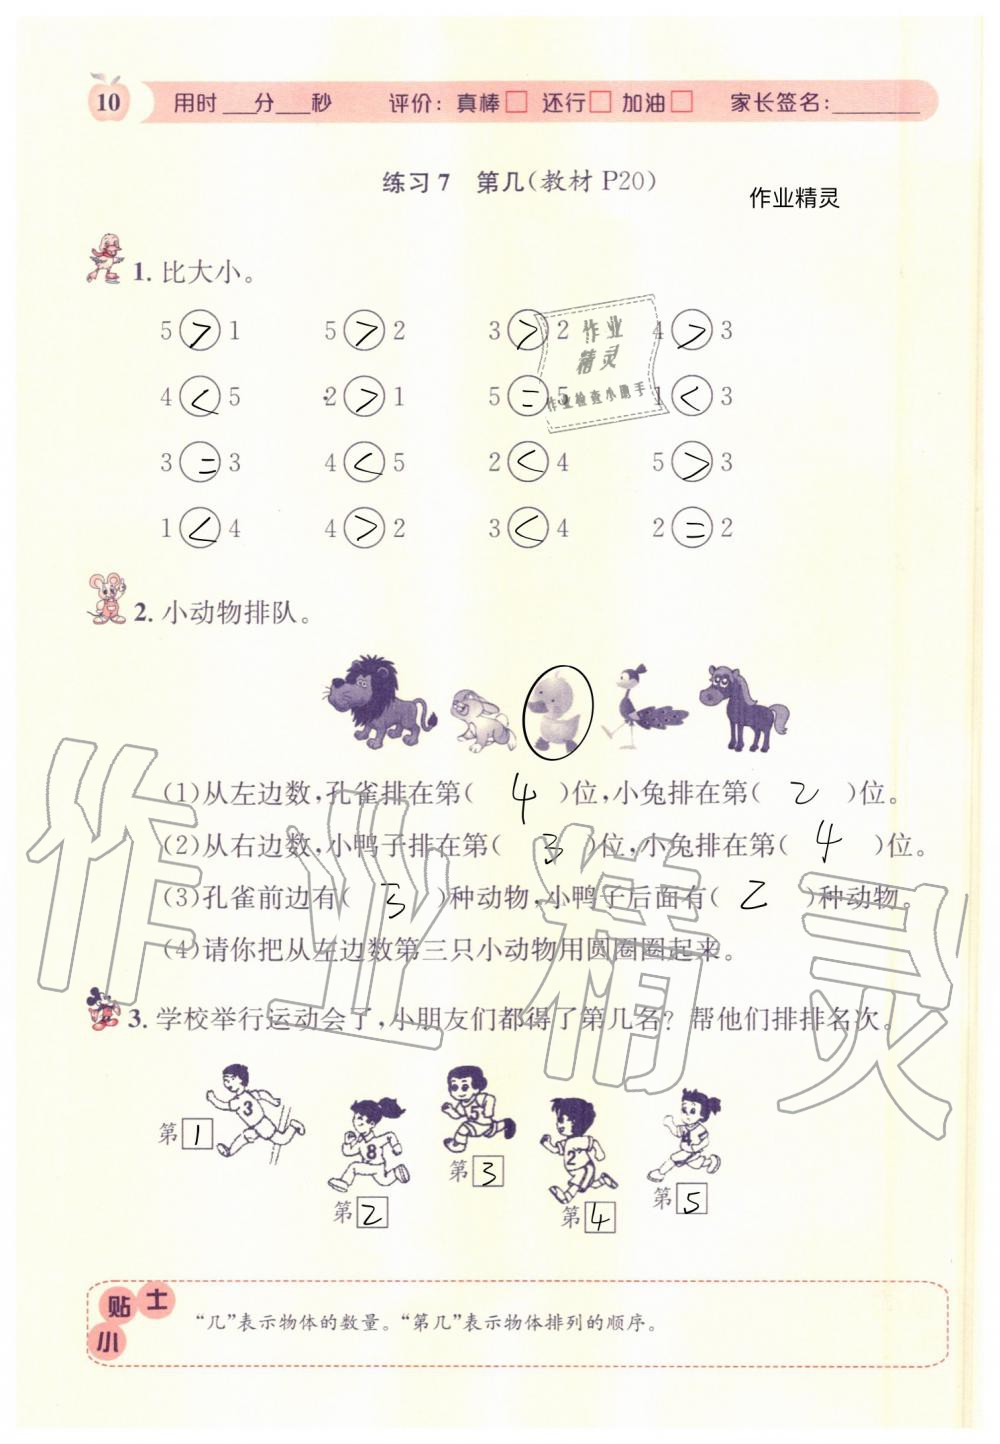 10 用时___分___秒 评价：真棒□ 还行□ 加油□ 家长签名：______
练习7 第几（教材 P20）
作业精灵
1. 比大小。
5 > 1 5 > 2 3 > 2 4 > 3
4 < 5 2 > 1 5 = 5 1 < 3
3 = 3 4 < 5 2 < 4 5 > 3
1 < 4 4 > 2 3 < 4 2 = 2
作业
精灵
作业检查小助手
2. 小动物排队。
(1)从左边数，孔雀排在第( 4 )位，小兔排在第( 2 )位。
(2)从右边数，小鸭子排在第( 3 )位，小兔排在第( 4 )位。
(3)孔雀前边有( 3 )种动物，小鸭子后面有( 2 )种动物。
(4)请你把从左边数第三只小动物用圆圈圈起来。
作业精灵
3. 学校举行运动会了，小朋友们都得了第几名？帮他们排排名次。
3 8 5 2 4
第1 第2 第3 第4 第5
小贴士
“几”表示物体的数量。“第几”表示物体排列的顺序。